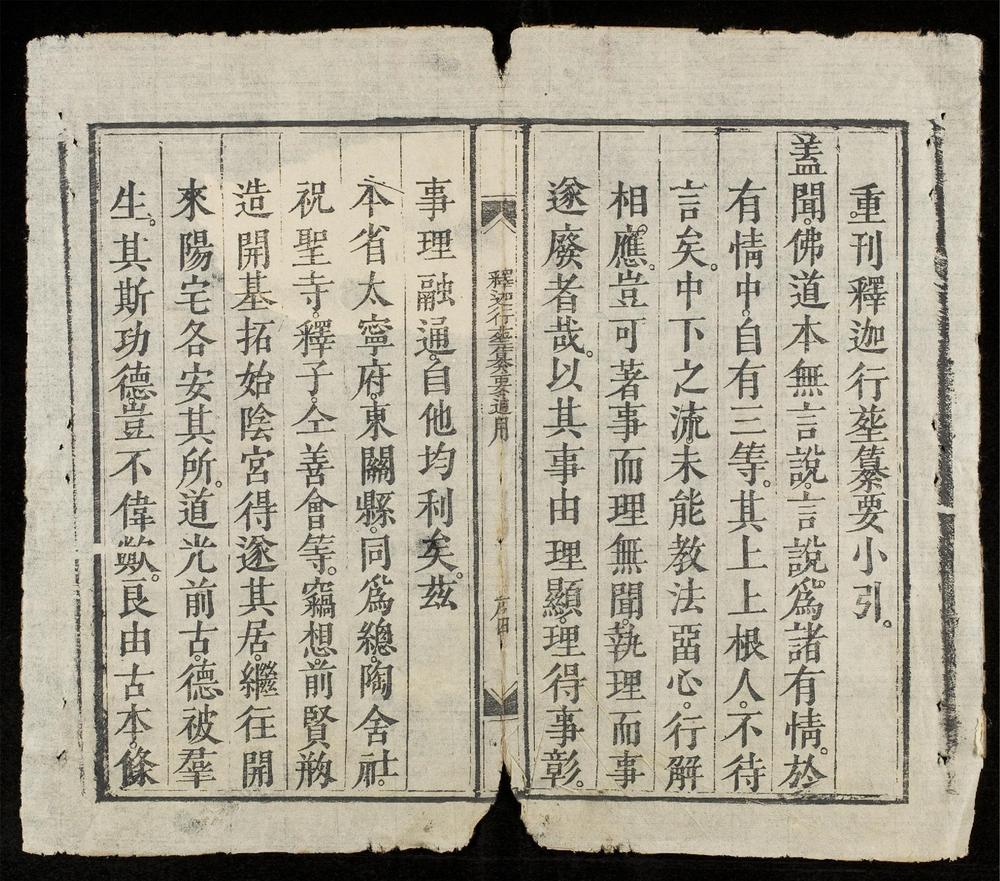 重刊釋迦行𦵏纂要小引。
盖聞。佛道本無言說。言說。為諸有情。於
有情中。自有三等。其上上根人。不待
言矣。中下之流。未能教法𠵇心。行解
相應。豈可著事而理無聞。執理而事
遂廢者哉。以其事由理顯。理得事彰。
釋迦行𦵏纂要適用
事理融通。自他均利矣。茲
本省太寧府。東關縣。同為總。陶舍社。
祝聖寺。釋子。仝善會等。竊想。前賢剏
造開基拓始陰宮得遂其居。繼往開
來陽宅各安其所。道光前古。德被羣
生。其斯功德。豈不偉歟。良由古本。條